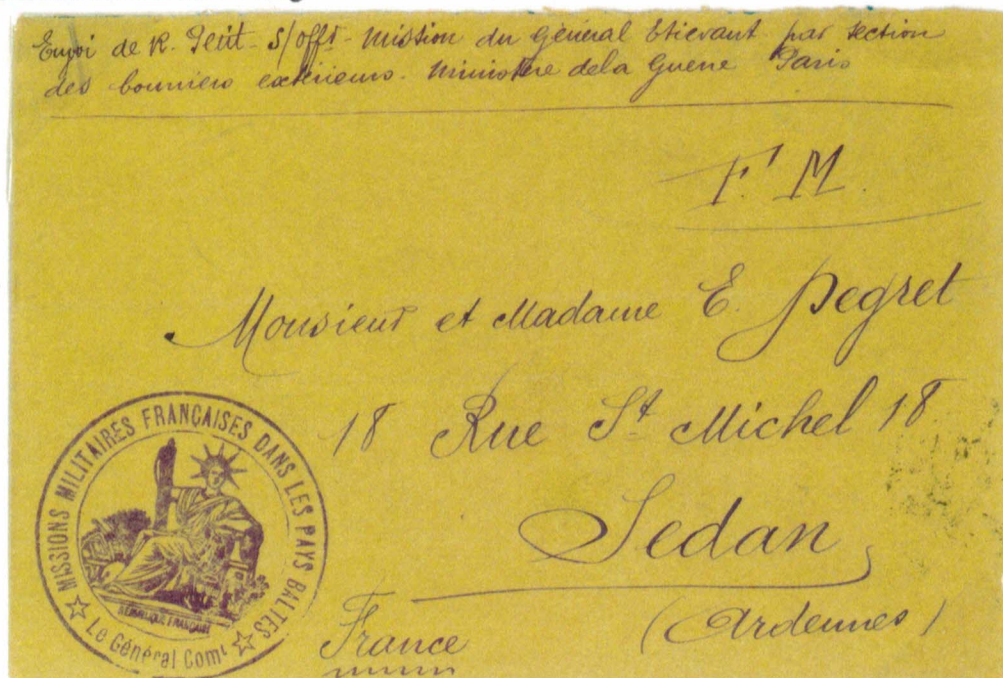 Envoi de R. Petit - S/offr - Mission du Général Etievant par section
des courriers extérieurs. Ministère de la Guerre Paris
F. M.
Monsieur et Madame E. Pegret
18 Rue St Michel 18
Sedan
(Ardennes)
France
MISSIONS MILITAIRES FRANÇAISES DANS LES PAYS BALTES
Le Général Comt
RÉPUBLIQUE FRANÇAISE